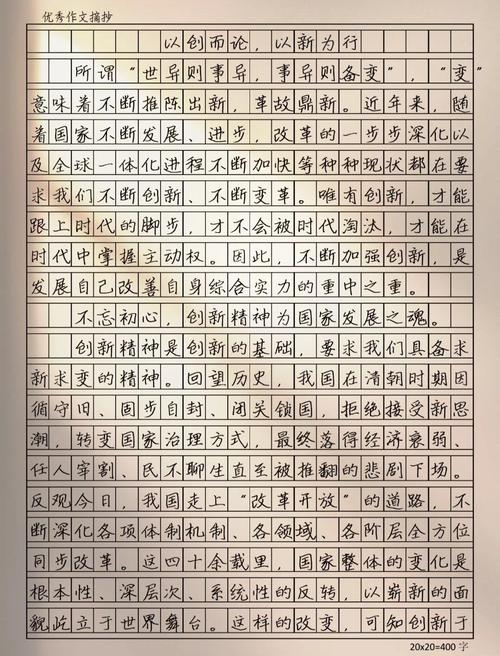 优秀作文摘抄
以创而论，以新为行
所谓“世异则事异，事异则备变”，“变”
意味着不断推陈出新，革故鼎新。近年来，随
着国家不断发展、进步，改革的一步步深化以
及全球一体化进程不断加快等种种现状都在要
求我们不断创新、不断变革。唯有创新，才能
跟上时代的脚步，才不会被时代淘汰，才能在
时代中掌握主动权。因此，不断加强创新，是
发展自己改善自身综合实力的重中之重。
不忘初心，创新精神为国家发展之魂。
创新精神是创新的基础，要求我们具备求
新求变的精神。回望历史，我国在清朝时期因
循守旧、固步自封、闭关锁国，拒绝接受新思
潮，转变国家治理方式，最终落得经济衰弱、
任人宰割、民不聊生直至被推翻的悲剧下场。
反观今日，我国走上“改革开放”的道路，不
断深化各项体制机制、各领域、各阶层全方位
同步改革。这四十余载里，国家整体的变化是
根本性、深层次、系统性的反转，以崭新的面
貌屹立于世界舞台。这样的改变，可知创新于
20x20=400 字